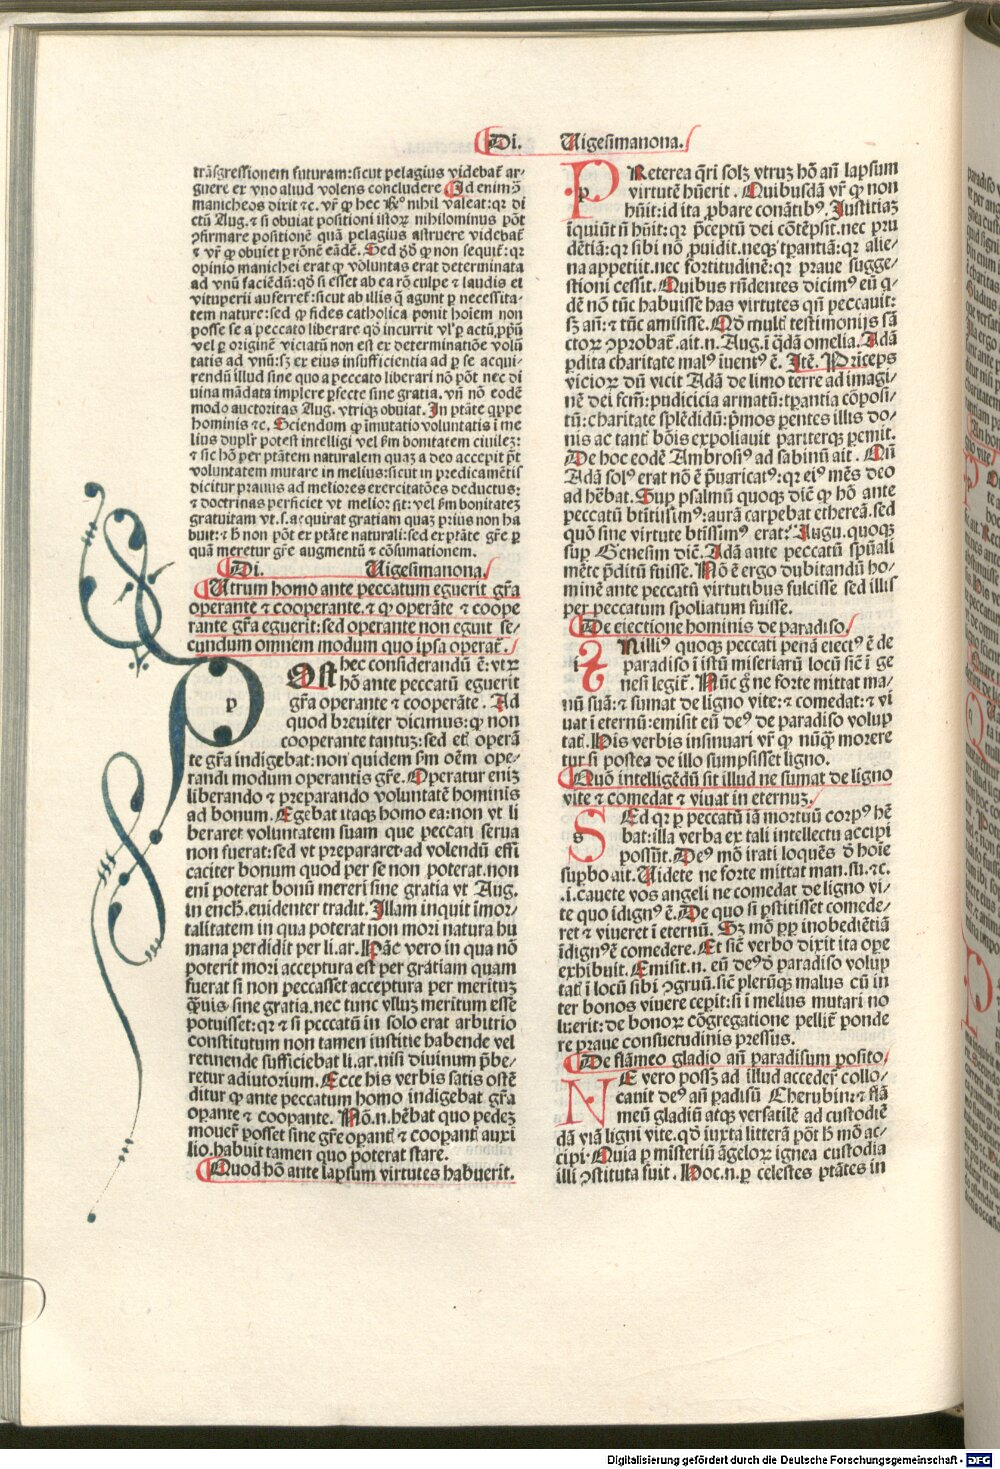 Di. Uigesimanona.
trãsgressionem futuram: sicut pelagius videbat̃ ar-
guere ex vno aliud volens concludere. Id enim ꝯ̃
manicheos dixit ⁊c. vr̃ ꝙ hec rñsio nihil valeat: qꝛ di
ctũ Aug. ⁊ si obuiat positioni istoꝝ nihilominus põt
ꝯfirmare positionẽ quã pelagius astruere videbat̃
⁊ vr̃ ꝙ obuiet ꝑ rõnẽ eãdẽ. Sed ꝙ non sequit̃: qꝛ
opinio manichei erat ꝙ võluntas erat determinata
ad vnũ faciẽdũ: qđ si esset ab ea rõ culpe ⁊ laudis et
vituperij auferret̃: sicut ab illis q̃ agunt ꝑ necessita-
tem nature: sed ꝙ fides catholica ponit hoĩem non
posse se a peccato liberare qđ incurrit vl' ꝑ actũ ꝓpriũ
vel ꝑ originẽ viciatũ non est ex determinatiõe volũ
tatis ad vnũ: sꝫ ex eius insufficientia ad ꝑ se acqui-
rendũ illud sine quo a peccato liberari nõ põt nec di
uina mãdata implere ꝑfecte sine gratia. vñ nõ eodẽ
modo auctoritas Aug. vtriqꝫ obuiat. In ptãte qͥppe
hominis ⁊c. Sciendum ꝙ ĩmutatio voluntatis ĩ me
lius dupl'r potest intelligi vel ẜm bonitatem ciuileꝫ:
⁊ sic hõ per ptãtem naturalem quaꝫ a deo accepit põt
voluntatem mutare in melius: sicut in predicamẽtis
dicitur prauus ad meliores exercitatões deductus:
⁊ doctrinas perficiet vt melior sit: vel ẜm bonitateꝫ
gratuitam vt. s. acquirat gratiam quaꝫ prius non ha
buit: ⁊ h̃ non põt ex ptãte naturali: sed ex ptãte gr̃e ꝑ
quã meretur gr̃e augmentũ ⁊ cõsumationem.
Di. Uigesimanona.
Utrum homo ante peccatum eguerit gr̃a
operante ⁊ cooperante. ⁊ ꝙ operãte ⁊ coope
rante gr̃a eguerit: sed operante non eguit se-
cundum omnem modum quo ipsa operat̃.
p
Ost hec considerandũ ẽ: vtꝝ
hõ ante peccatũ eguerit
gr̃a operante ⁊ cooperãte. Ad
quod breuiter dicimus: ꝙ non
cooperante tantuꝫ: sed etĩ operã
te gr̃a indigebat: non quidem ẜm oẽm ope-
randi modum operantis gr̃e. Operatur eniꝫ
liberando ⁊ preparando voluntatẽ hominis
ad bonum. Egebat itaqꝫ homo ea: non vt li
beraret voluntatem suam que peccati serua
non fuerat: sed vt prepararet ad volendũ effi
caciter bonum quod per se non poterat. non
enĩ poterat bonũ mereri sine gratia vt Aug.
in ench. euidenter tradit. Illam inquit ĩmor-
talitatem in qua poterat non mori natura hu
mana perdidit per li. ar. Hãc vero in qua nõ
poterit mori acceptura est per gratiam quam
fuerat si non peccasset acceptura per meritũ:
q̃uis sine gratia. nec tunc vlluꝫ meritum esse
potuisset: qꝛ ⁊ si pctatũ in solo erat arbitrio
constitutum non tamen iustitie habende vel
retinende sufficiebat li. ar. nisi diuinum p̃be-
retur adiutorium. Ecce his verbis satis ostẽ
ditur ꝙ ante peccatum homo indigebat gr̃a
oꝑante ⁊ cooꝑante. Nõ. n. hẽbat quo pedeꝫ
mouer̃ posset sine gr̃e oꝑant̃ ⁊ cooꝑant̃ auxi
lio. habuit tamen quo poterat stare.
Quod hõ ante lapsum virtutes habuerit.
p
PReterea q̃ri solꝫ vtruꝫ hõ añ lapsum
virtutẽ hñerit. Quibusdã vr̃ ꝙ non
hñit: id ita ꝓbare conãtibꝰ. Iustitiaꝫ
ĩquiũt nõ hñit: qꝛ p̃ceptũ dei cõtẽpsit. nec pru
dẽtiã: qꝛ sibi nõ ꝓuidit. neqꝫ tꝑantiã: qꝛ alie-
na appetijt. nec fortitudinẽ: qꝛ praue sugge-
stioni cessit. Quibus rñdentes dicimꝰ eũ q̃-
dẽ nõ tũc habuisse has virtutes qñ peccauit:
sꝫ añ: ⁊ tũc amisisse. Qđ multꝭ testimonijs sã
ctoꝝ ꝯprobat̃. ait. n. Aug. ĩ q̃dã omelia. Adã
ꝑdita charitate malꝰ ĩuentꝰ ẽ. Itẽ. Prĩceps
vicioꝝ dũ vicit Adã de limo terre ad imagi-
nẽ dei fc̃m: pudicicia armatũ: tꝑantia cõposi-
tũ: charitate splẽdidũ: p̃mos ꝑentes illis do-
nis ac tantꝭ bõis expoliauit pariterqꝫ ꝑemit.
De hoc eodẽ Ambrosiꝰ ad sabinũ ait. Qñ
Adã solꝰ erat nõ ẽ p̃uaricatꝰ: qꝛ eiꝰ mẽs deo
adhẽbat. Sup psalmũ quoqꝫ dic̃ ꝙ hõ ante
peccatũ btĩtusimꝰ: aurã carpebat etheream. sed
quõ sine virtute btissimꝰ erat: Augu. quoqꝫ
sup Genesim dic̃. Adã ante peccatũ sp̃uali
mẽte p̃ditũ fuisse. Nõ ẽ ergo dubitandũ ho-
minẽ ante peccatũ virtutibus fulcisse sed illis
per peccatum spoliatum fuisse.
De eiectione hominis de paradiso.
i
INillĩꝰ quoqꝫ peccati penã eiectꝰ ẽ de
paradiso ĩ istũ miseriarũ locũ sic̃ ĩ ge
nesi legit̃. Nũc g̃ ne forte mittat ma-
nũ suã: ⁊ sumat de ligno vite: ⁊ comedat: ⁊ vi
uat ĩ eternũ: emisit eũ deꝰ de paradiso volup
tatꝭ. His verbis insinuari vr̃ ꝙ nũꝗ̃ morere
tur si postea de illo sumpsisset ligno.
Quõ intelligẽdũ sit illud ne sumat de ligno
vite ⁊ comedat ⁊ viuat in eternuꝫ.
s
SEd qꝛ ꝑ peccatũ iã mortuũ corpꝰ hẽ
bat: illa verba ex tali intellectu accipi
possũt. Deꝰ mõ irati loquẽs đ hoĩe
suꝑbo ait. Uidete ne forte mittat man. su. ⁊c.
.i. cauete vos angeli ne comedat de ligno vi-
te quo ĩdignꝰ ẽ. De quo si ꝑstitisset comede-
ret ⁊ viueret ĩ eternũ. Sꝫ mõ ꝓp̃ inobediẽtiã
ĩdignꝰ ẽ comedere. Et sic̃ verbo dixit ita oꝑe
exhibuit. Emisit. n. eũ deꝰ đ paradiso volup
tatꝭ ĩ locũ sibi ꝯgruũ. sic̃ plerũqꝫ malus cũ in
ter bonos viuere ceꝑit: si ĩ melius mutari no
luerit: de bonoꝝ cõgregatione pellit̃ ponde
re praue consuetudinis pressus.
De flãmeo gladio añ paradisum posito.
NE vero possꝫ ad illud acceder̃ collo-
cauit deꝰ añ padisũ Cherubin: ⁊ flã
meũ gladiũ atqꝫ versatilẽ ad custodiẽ
dã viã ligni vite. qđ iuxta litterã põt h̃ mõ ac-
cipi. Quia ꝑ misteriũ ãgeloꝝ ignea custodia
illi ꝯstituta fuit. Hoc. n. ꝑ celestes ptãtes in
Digitalisierung gefördert durch die Deutsche Forschungsgemeinschaft - DFG